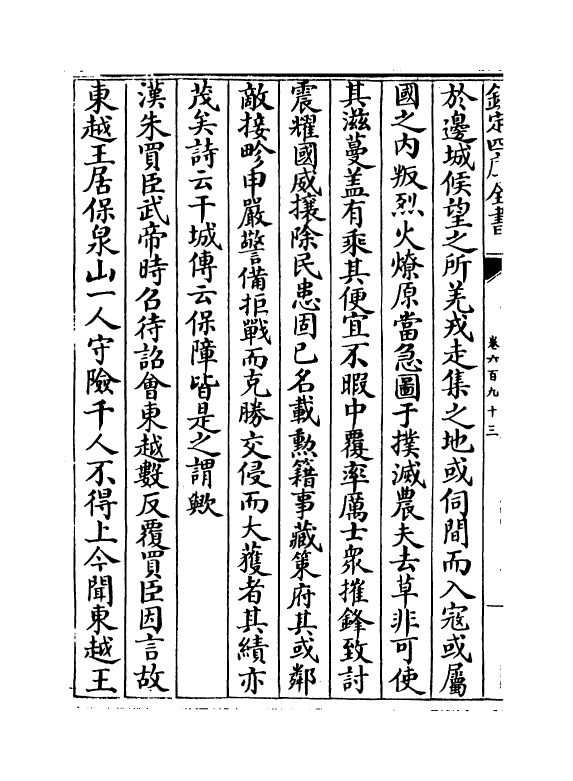 欽定四庫全書
卷六百九十三
於邊城候望之所羌戎走集之地或伺間而入寇或屬
國之内叛烈火燎原當急圖于撲滅農夫去草非可使
其滋蔓盖有乘其便宜不暇中覆率厲士衆摧鋒致討
震耀國威攘除民患固已名載勲籍事藏策府其或鄰
敵接畛申嚴警備拒戰而克勝交侵而大獲者其績亦
茂矣詩云干城傳云保障皆是之謂歟
漢朱買臣武帝時召待詔會東越數反覆買臣因言故
東越王居保泉山一人守險千人不得上今聞東越王